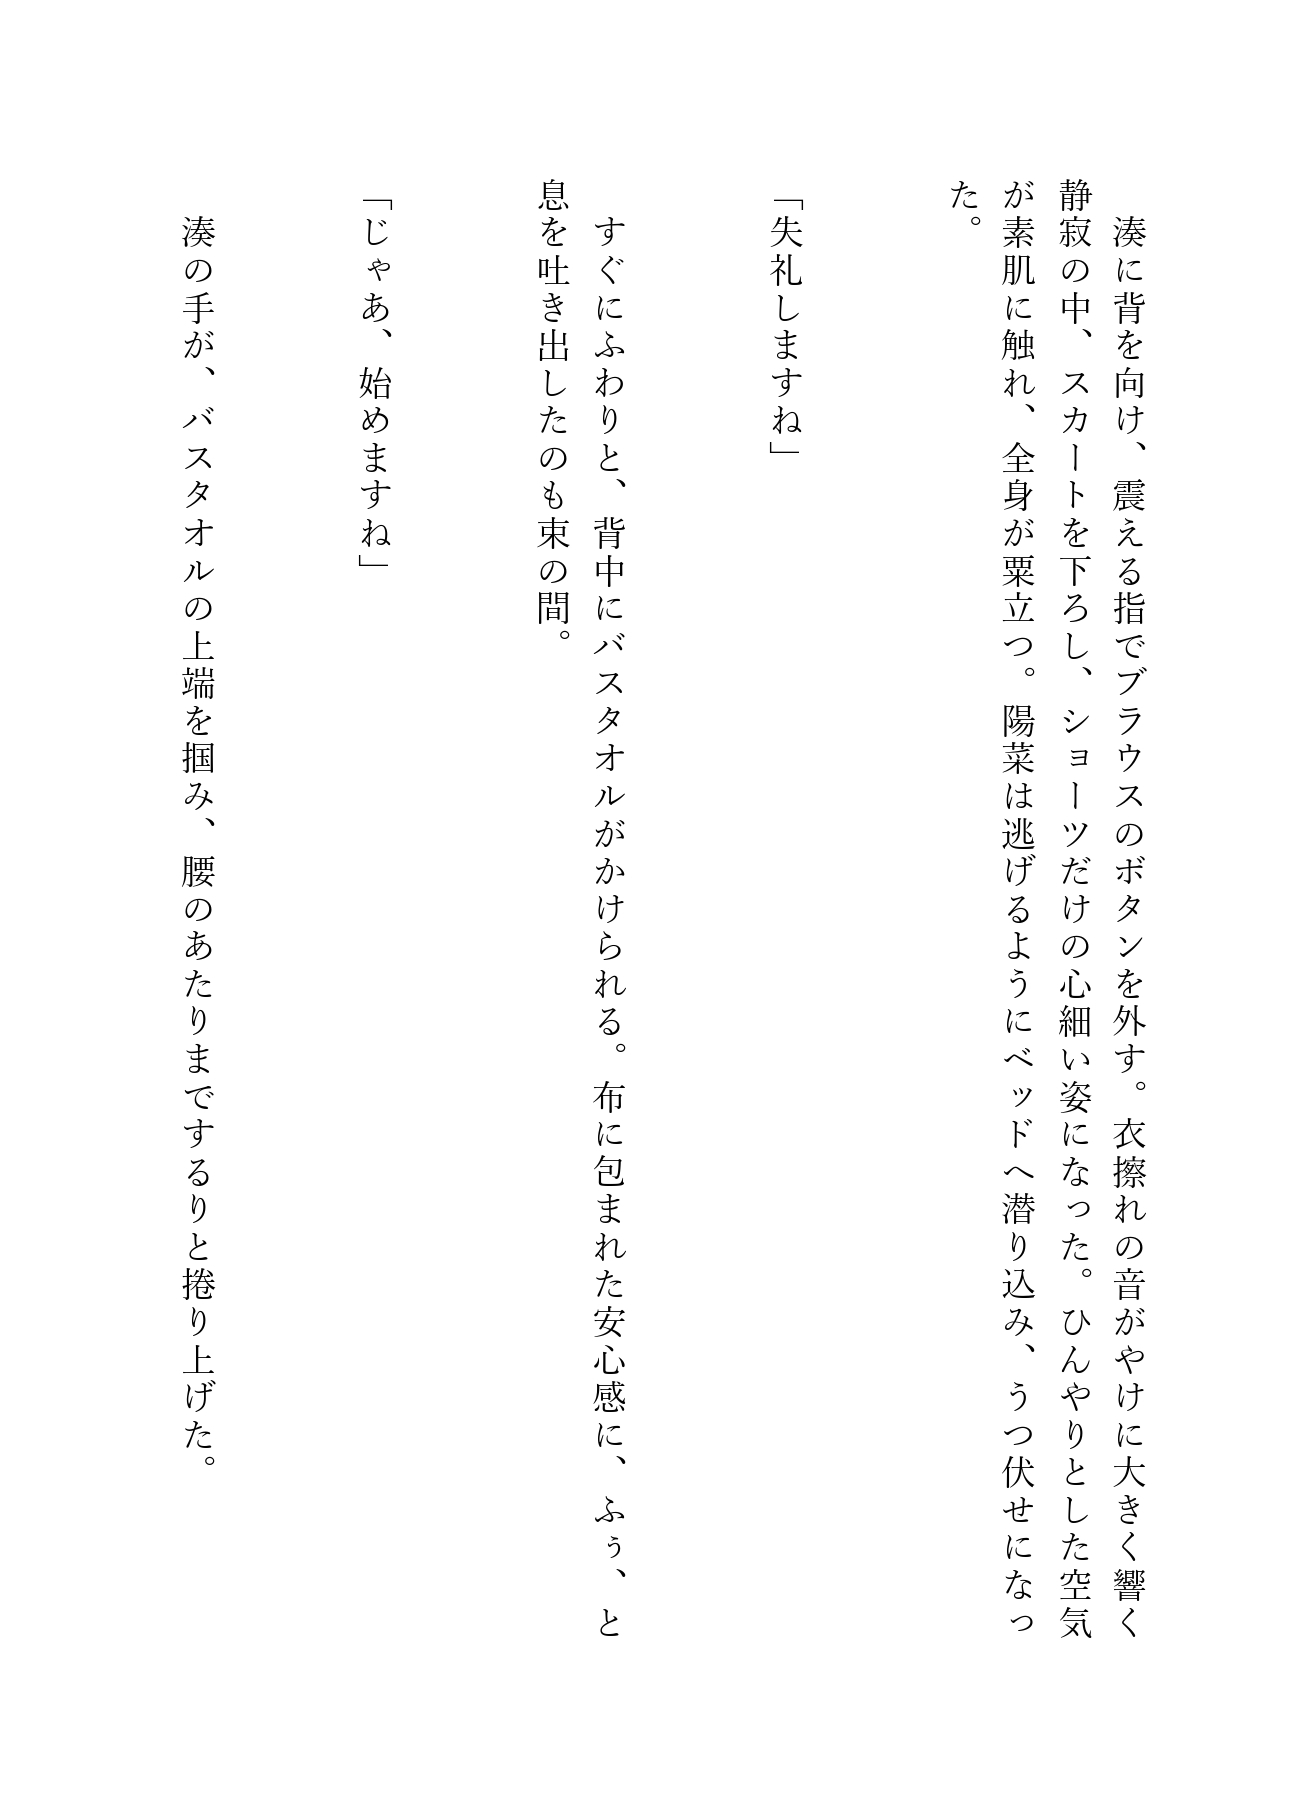 湊に背を向け、震える指でブラウスのボタンを外す。衣擦れの音がやけに大きく響く
静寂の中、スカートを下ろし、ショーツだけの心細い姿になった。ひんやりとした空気
が素肌に触れ、全身が粟立つ。陽菜は逃げるようにベッドへ潜り込み、うつ伏せになっ
た。
「失礼しますね」
　すぐにふわりと、背中にバスタオルがかけられる。布に包まれた安心感に、ふぅ、と
息を吐き出したのも束の間。
「じゃあ、始めますね」
　湊の手が、バスタオルの上端を掴み、腰のあたりまでするりと捲り上げた。